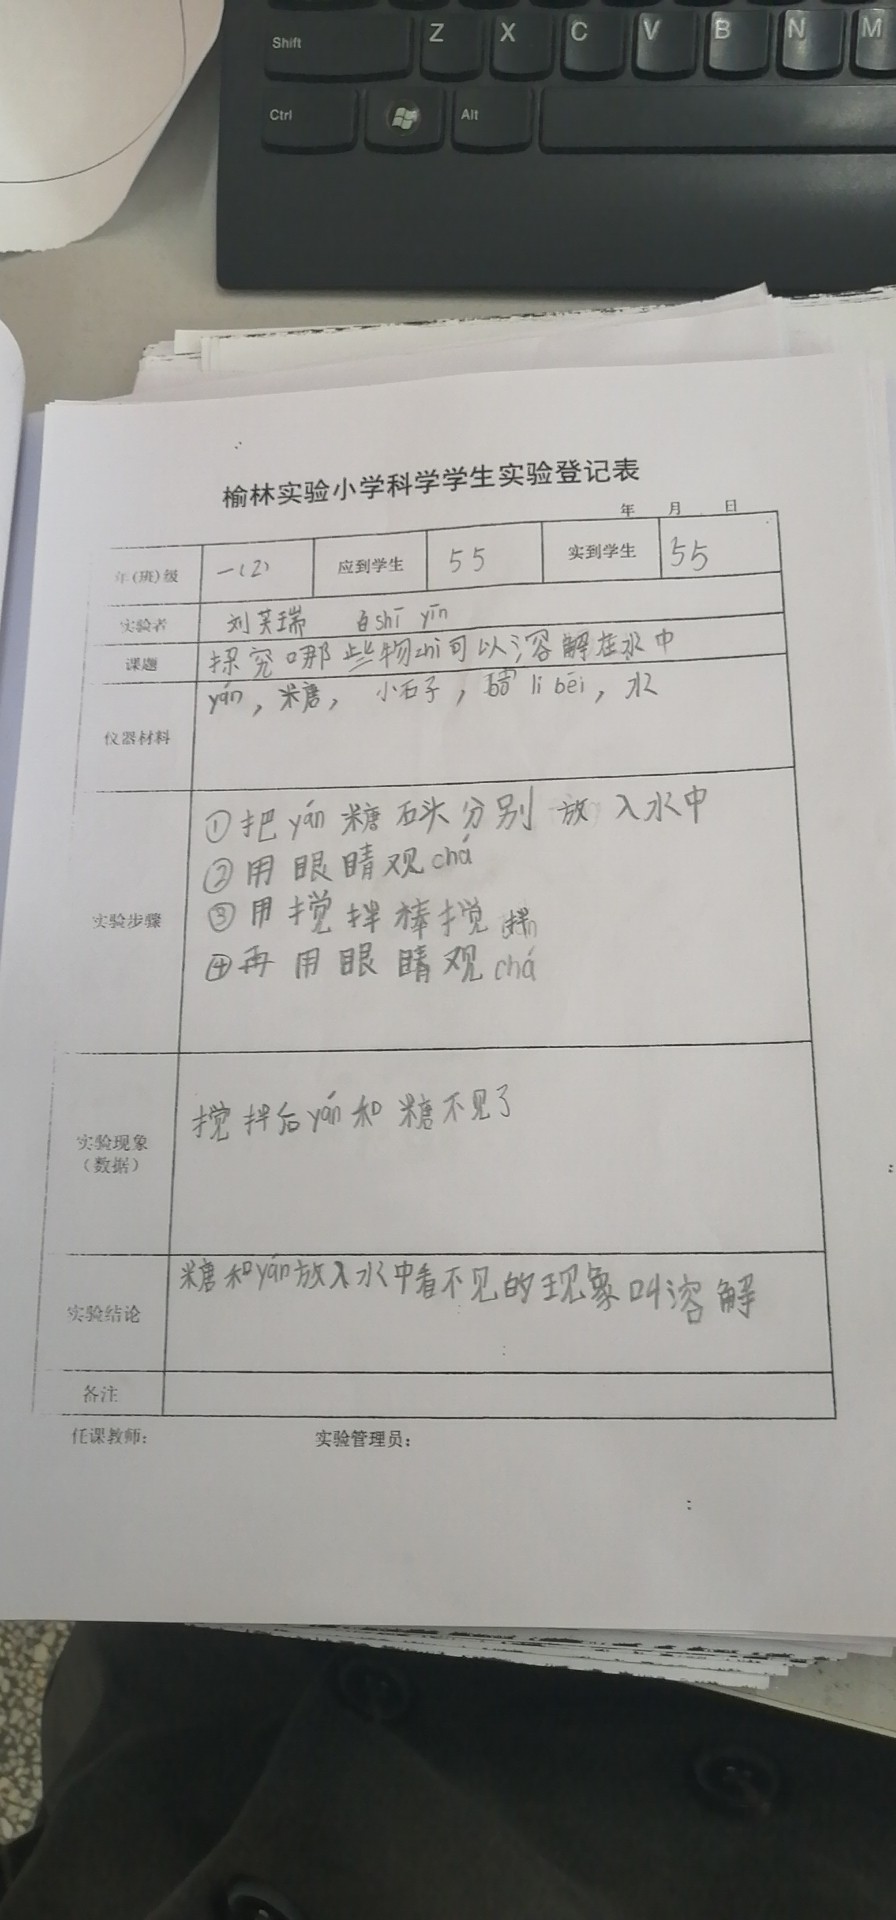 Shift Z X C V B N M
Ctrl Alt
榆林实验小学科学学生实验登记表
年 月 日
年(班)级 一(2) 应到学生 55 实到学生 55
实验者 刘芙瑞 白shī yīn
课题 探究哪些物zhì可以溶解在水中
仪器材料 yán，糖，小石子， lí bēi，水
实验步骤
①把yán糖石头分别放入水中
②用眼睛观chá
③用搅拌棒搅拌
④再用眼睛观chá
实验现象
（数据）
搅拌后yán和糖不见了
实验结论 糖和yán放入水中看不见的现象叫溶解
备注
任课教师： 实验管理员：